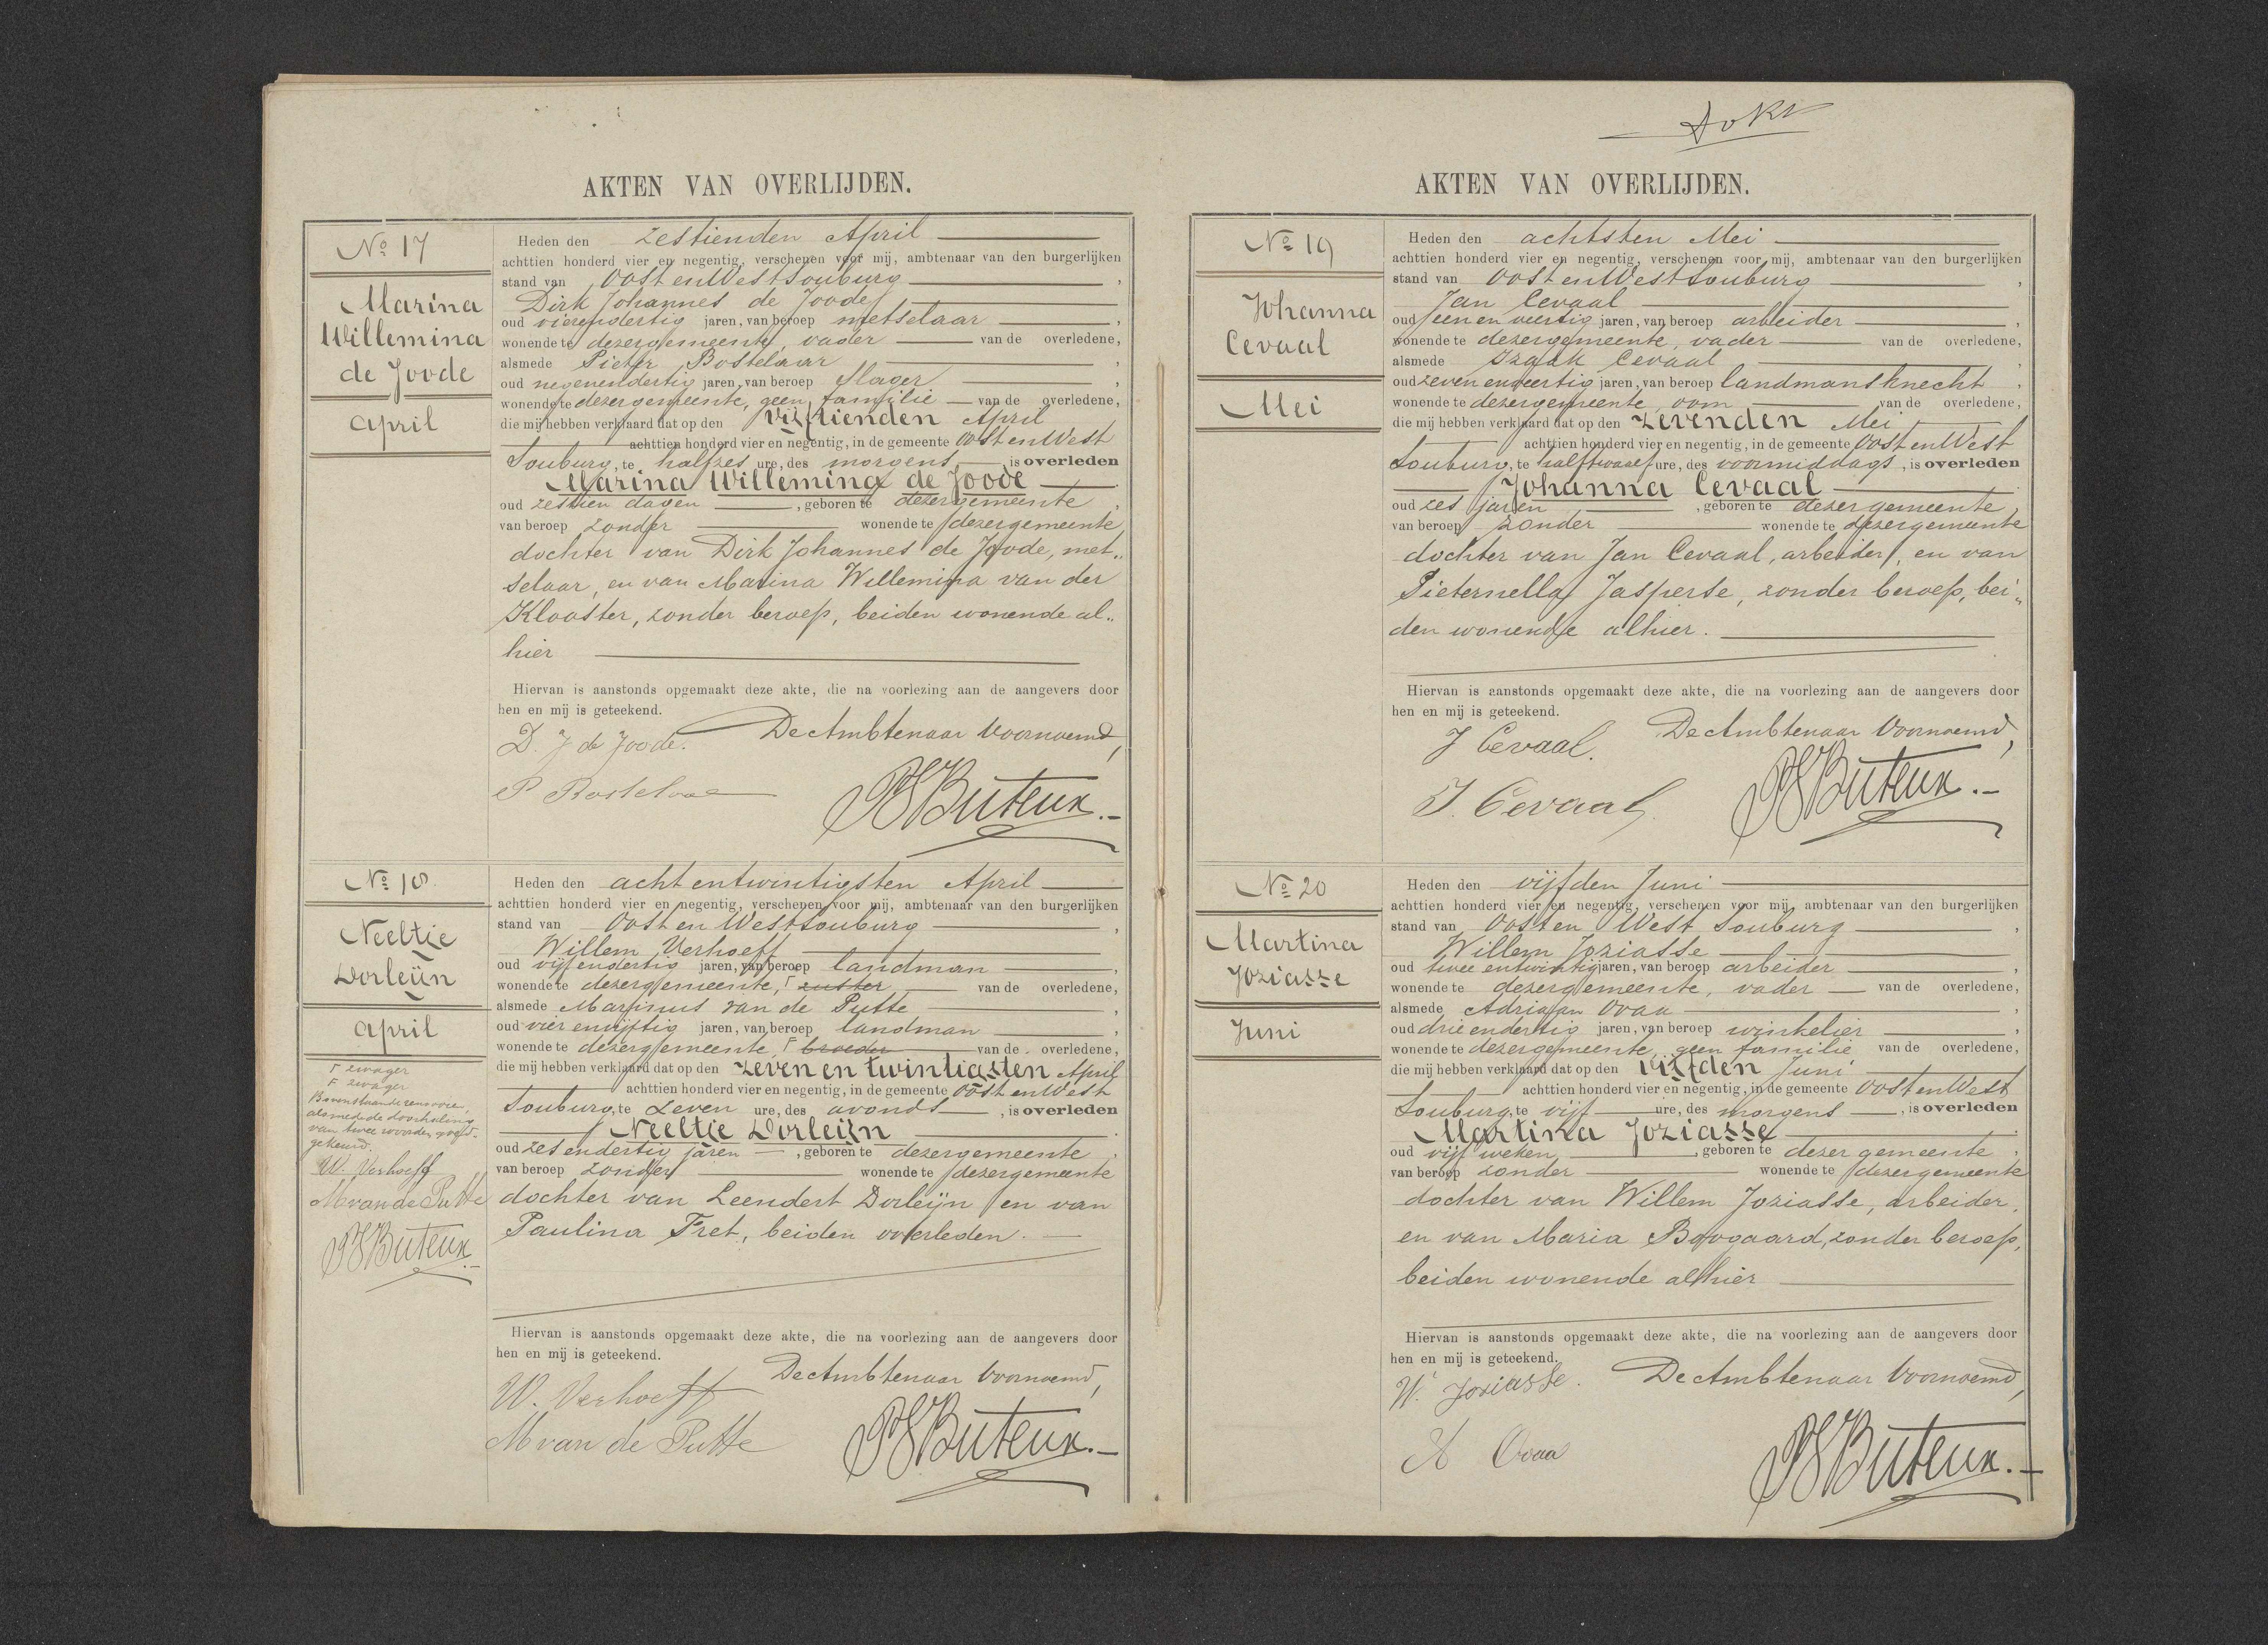 AKTEN VAN OVERLIJDEN.
No 17
Marina
Willemina
de Joode
April
Heden den zestienden April
achttien honderd vier en negentig, verschenen voor mij, ambtenaar van den burgerlijken
stand van Oost en West Souburg ,
Dirk Johannes de Joode
oud vierendertig jaren, van beroep metselaar ,
wonende te dezer gemeente, vader van de overledene,
alsmede Pieter Bostelaar ,
oud negenendertig jaren, van beroep slager ,
wonende te dezer gemeente, geen familie van de overledene,
die mij hebben verklaard dat op den vijftienden April
achttien honderd vier en negentig, in de gemeente Oost en West
Souburg, te halfzes ure, des morgens is overleden
Marina Willemina de Joode
oud zestien dagen , geboren te dezer gemeente ,
van beroep zonder wonende te dezer gemeente
dochter van Dirk Johannes de Joode, met„
selaar, en van Marina Willemina van der
Klooster, zonder beroep, beiden wonende al„
hier
Hiervan is aanstonds opgemaakt deze akte, die na voorlezing aan de aangevers door
hen en mij is geteekend.
De Ambtenaar Voornoemd,
D. J de Joode.
P Bostelaar
PSButeux.-
No 18.
Neeltje
Dorleijn
April
F zwager
F zwager
Bovenstaande renvooien,
alsmede de doorhaling
van twee woorden goed-
gekeurd.
W. Verhoeff
M van de Putte
PSButeux.-
Heden den acht en twintigsten April
achttien honderd vier en negentig, verschenen voor mij, ambtenaar van den burgerlijken
stand van Oost en West Souburg ,
Willem Verhoeff
oud vijfendertig jaren, van beroep landman ,
wonende te dezer gemeente, F zuster van de overledene,
alsmede Marinus van de Putte ,
oud vier en vijftig jaren, van beroep landman ,
wonende te dezer gemeente, F broeder van de overledene,
die mij hebben verklaard dat op den zeven en twintigsten April
achttien honderd vier en negentig, in de gemeente Oost en West
Souburg, te zeven ure, des avonds , is overleden
Neeltje Dorleijn .
oud zes endertig jaren , geboren te dezer gemeente ,
van beroep zonder wonende te dezer gemeente
dochter van Leendert Dorleijn en van
Paulina Fret, beiden overleden.
Hiervan is aanstonds opgemaakt deze akte, die na voorlezing aan de aangevers door
hen en mij is geteekend.
De Ambtenaar Voornoemd,
W. Verhoeff
M van de Putte
PSButeux.-
AKTEN VAN OVERLIJDEN.
No 19
Johanna
Cevaal
Mei
Heden den achtsten Mei
achttien honderd vier en negentig, verschenen voor mij, ambtenaar van den burgerlijken
stand van Oost en West Souburg ,
Jan Cevaal
oud een en veertig jaren, van beroep arbeider ,
wonende te dezer gemeente, vader van de overledene,
alsmede Izaak Cevaal ,
oud zeven en veertig jaren, van beroep landmansknecht ,
wonende te dezer gemeente, oom van de overledene,
die mij hebben verklaard dat op den zevenden Mei
achttien honderd vier en negentig, in de gemeente Oost en West
Souburg, te halftwaalf ure, des voormiddags , is overleden
Johanna Cevaal
oud zes jaren , geboren te dezer gemeente ,
van beroep zonder wonende te dezer gemeente
dochter van Jan Cevaal, arbeider, en van
Pieternella Jasperse, zonder beroep, bei„
den wonende alhier.
Hiervan is aanstonds opgemaakt deze akte, die na voorlezing aan de aangevers door
hen en mij is geteekend.
De Ambtenaar Voornoemd,
J Cevaal.
I. Cevaal.
PSButeux.-
No 20
Martina
Joziasse
Juni
Heden den vijfden Juni
achttien honderd vier en negentig, verschenen voor mij, ambtenaar van den burgerlijken
stand van Oost en West Souburg ,
Willem Joziasse
oud twee en twintig jaren, van beroep arbeider ,
wonende te dezer gemeente, vader van de overledene,
alsmede Adriaan Ovaa ,
oud drie endertig jaren, van beroep winkelier ,
wonende te dezer gemeente, geen familie van de overledene,
die mij hebben verklaard dat op den vijfden Juni
achttien honderd vier en negentig, in de gemeente Oost en West
Souburg, te vijf ure, des morgens , is overleden
Martina Joziasse .
oud vijf weken , geboren te dezer gemeente ,
van beroep zonder wonende te dezer gemeente
dochter van Willem Joziasse, arbeider,
en van Maria Boogaard, zonder beroep,
beiden wonende alhier
Hiervan is aanstonds opgemaakt deze akte, die na voorlezing aan de aangevers door
hen en mij is geteekend.
De Ambtenaar Voornoemd,
W. Joziasse.
A Ovaa
PSButeux.-